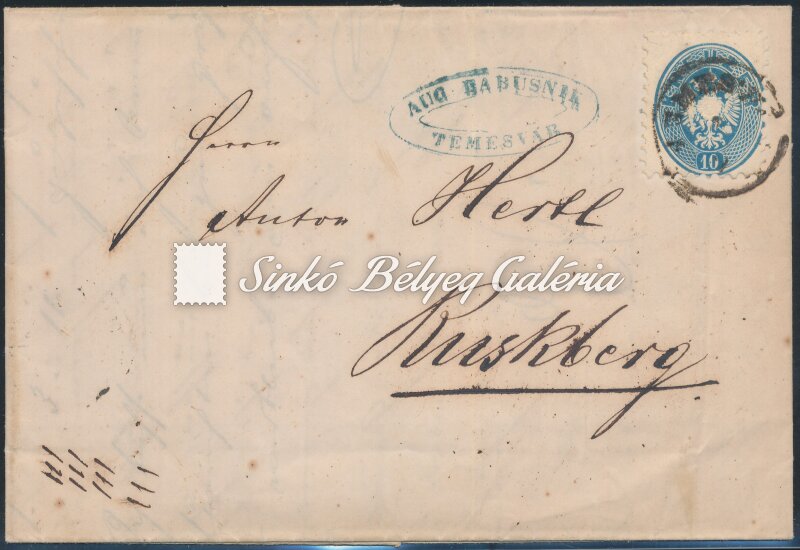 AUG BABUSNIK
TEMESVÁR
10
Herrn
Anton Hertl
Sinkó Bélyeg Galéria
Ruskberg